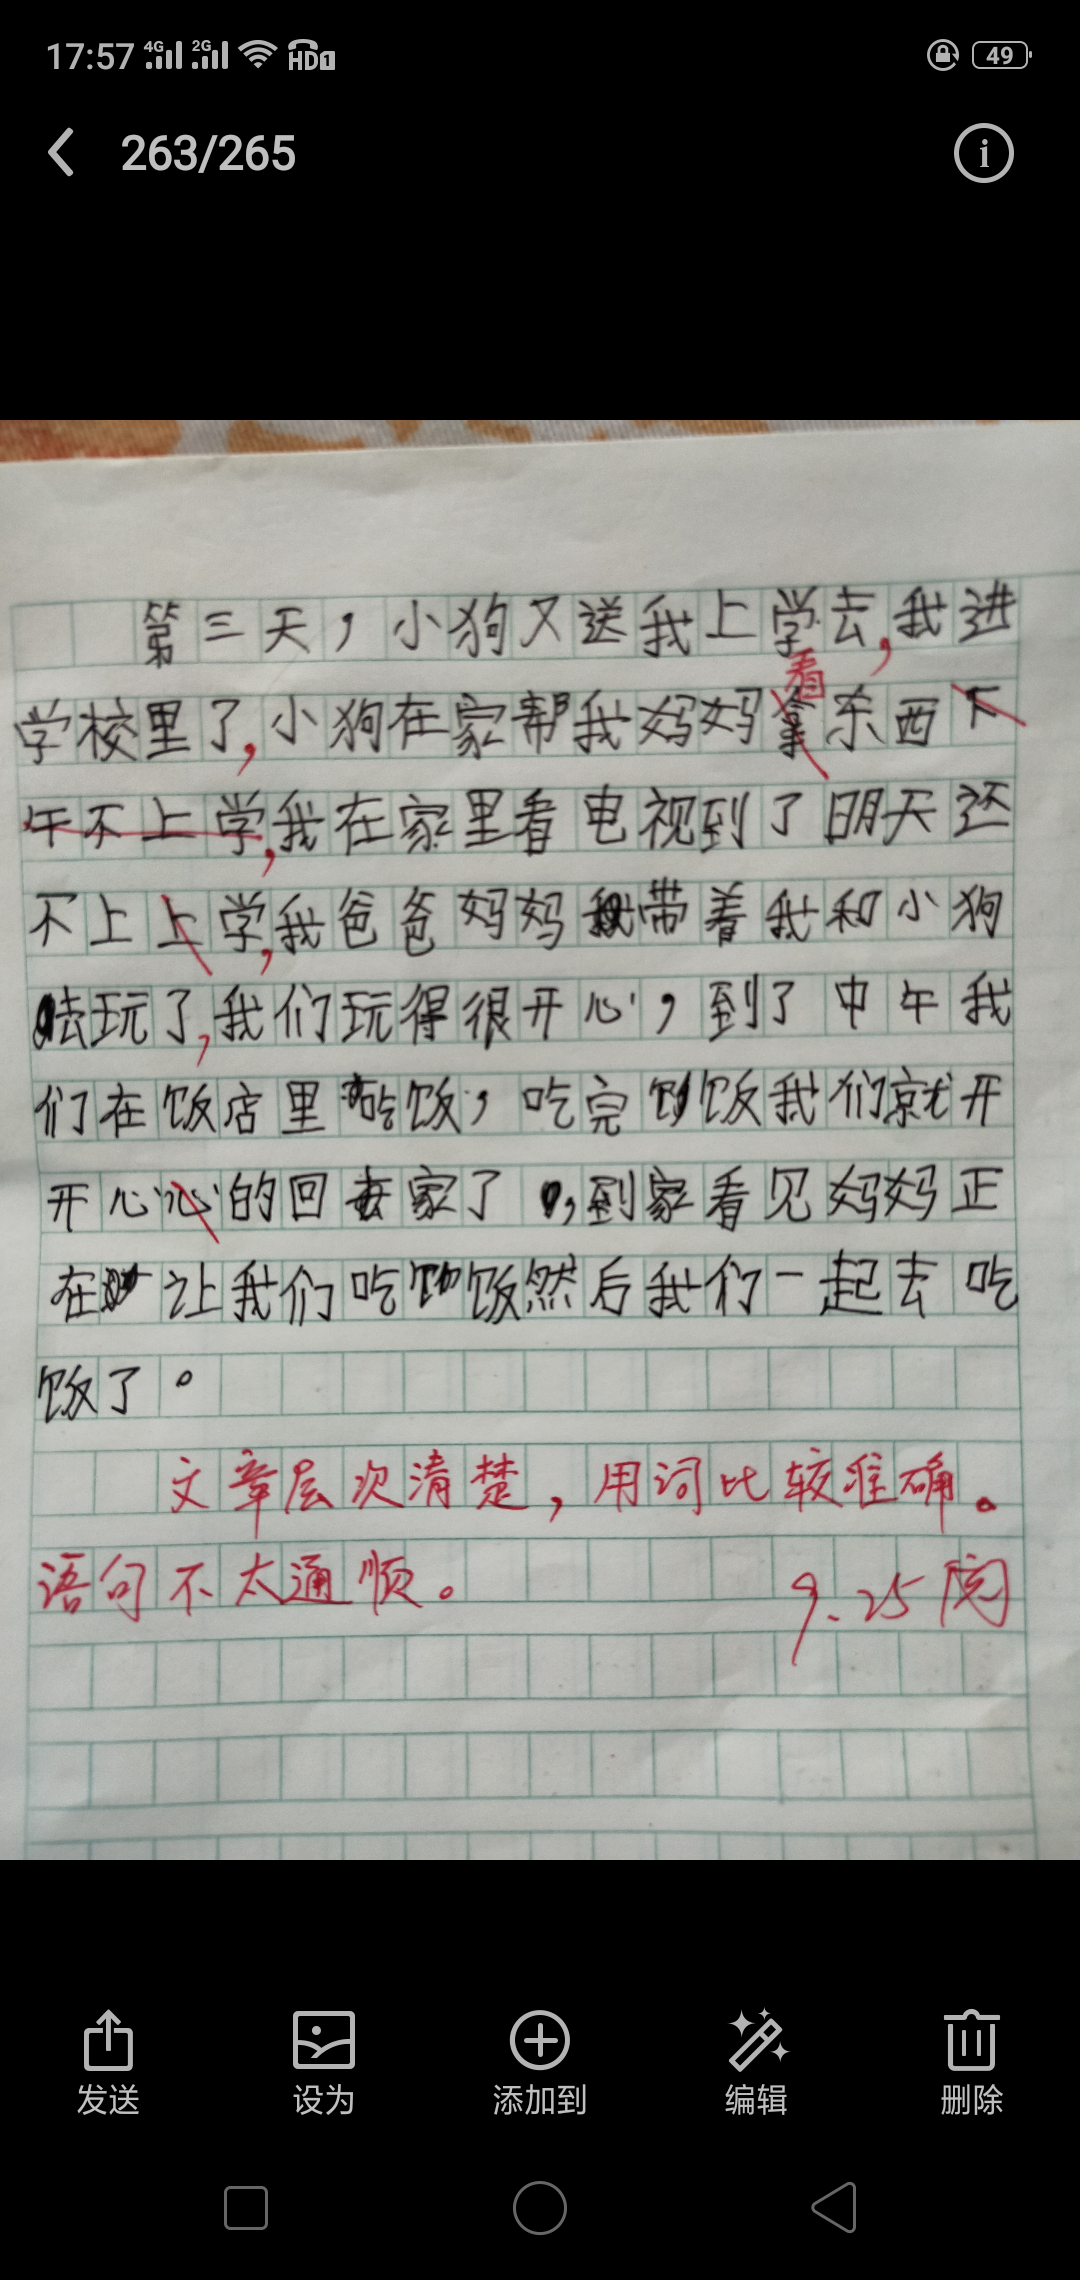 17:57 4G 2G HD1 49
263/265
第三天，小狗又送我上学去，我进
看
学校里了，小狗在家帮我妈妈拿东西下
午不上学，我在家里看电视到了明天还
不上上学，我爸爸妈妈带着我和小狗
去玩了，我们玩得很开心，到了中午我
们在饭店里吃饭，吃完饭我们就开
开心心的回家了，到家看见妈妈正
在让我们吃饭然后我们一起去吃
饭了。
文章层次清楚，用词比较准确。
语句不太通顺。 9.25阅
发送 设为 添加到 编辑 删除